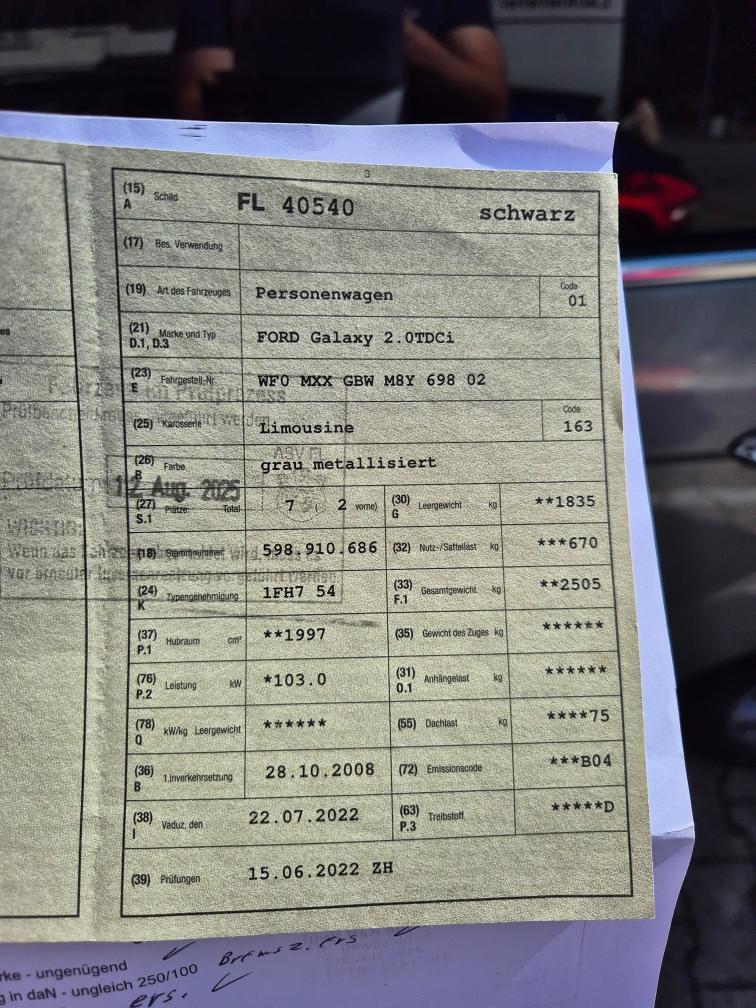 3
(15) A Schild FL 40540 schwarz
(17) Bes. Verwendung
(19) Art des Fahrzeuges Personenwagen Code 01
(21) D.1, D.3 Marke und Typ FORD Galaxy 2.0TDCi
(23) E Fahrgestell-Nr. WF0 MXX GBW M8Y 698 02
(25) Karosserie Limousine Code 163
(26) R Farbe grau metallisiert
ASV FL
12. Aug. 2025
(27) S.1 Plätze: Total 7 2 vorne) (30) G Leergewicht kg **1835
WICHTIG:
(18) Stammnummer 598.910.686 (32) Nutz-/Sattellast kg ***670
(24) K Typengenehmigung 1FH7 54 (33) F.1 Gesamtgewicht kg **2505
(37) P.1 Hubraum cm³ **1997 (35) Gewicht des Zuges kg ******
(76) P.2 Leistung kW *103.0 (31) O.1 Anhängelast kg ******
(78) Q kW/kg Leergewicht ****** (55) Dachlast kg ****75
(36) B 1.Inverkehrsetzung 28.10.2008 (72) Emissionscode ***B04
(38) I Vaduz, den 22.07.2022 (63) P.3 Treibstoff *****D
(39) Prüfungen 15.06.2022 ZH
rke - ungenügend Bremsz. ers
g in daN - ungleich 250/100
ers.